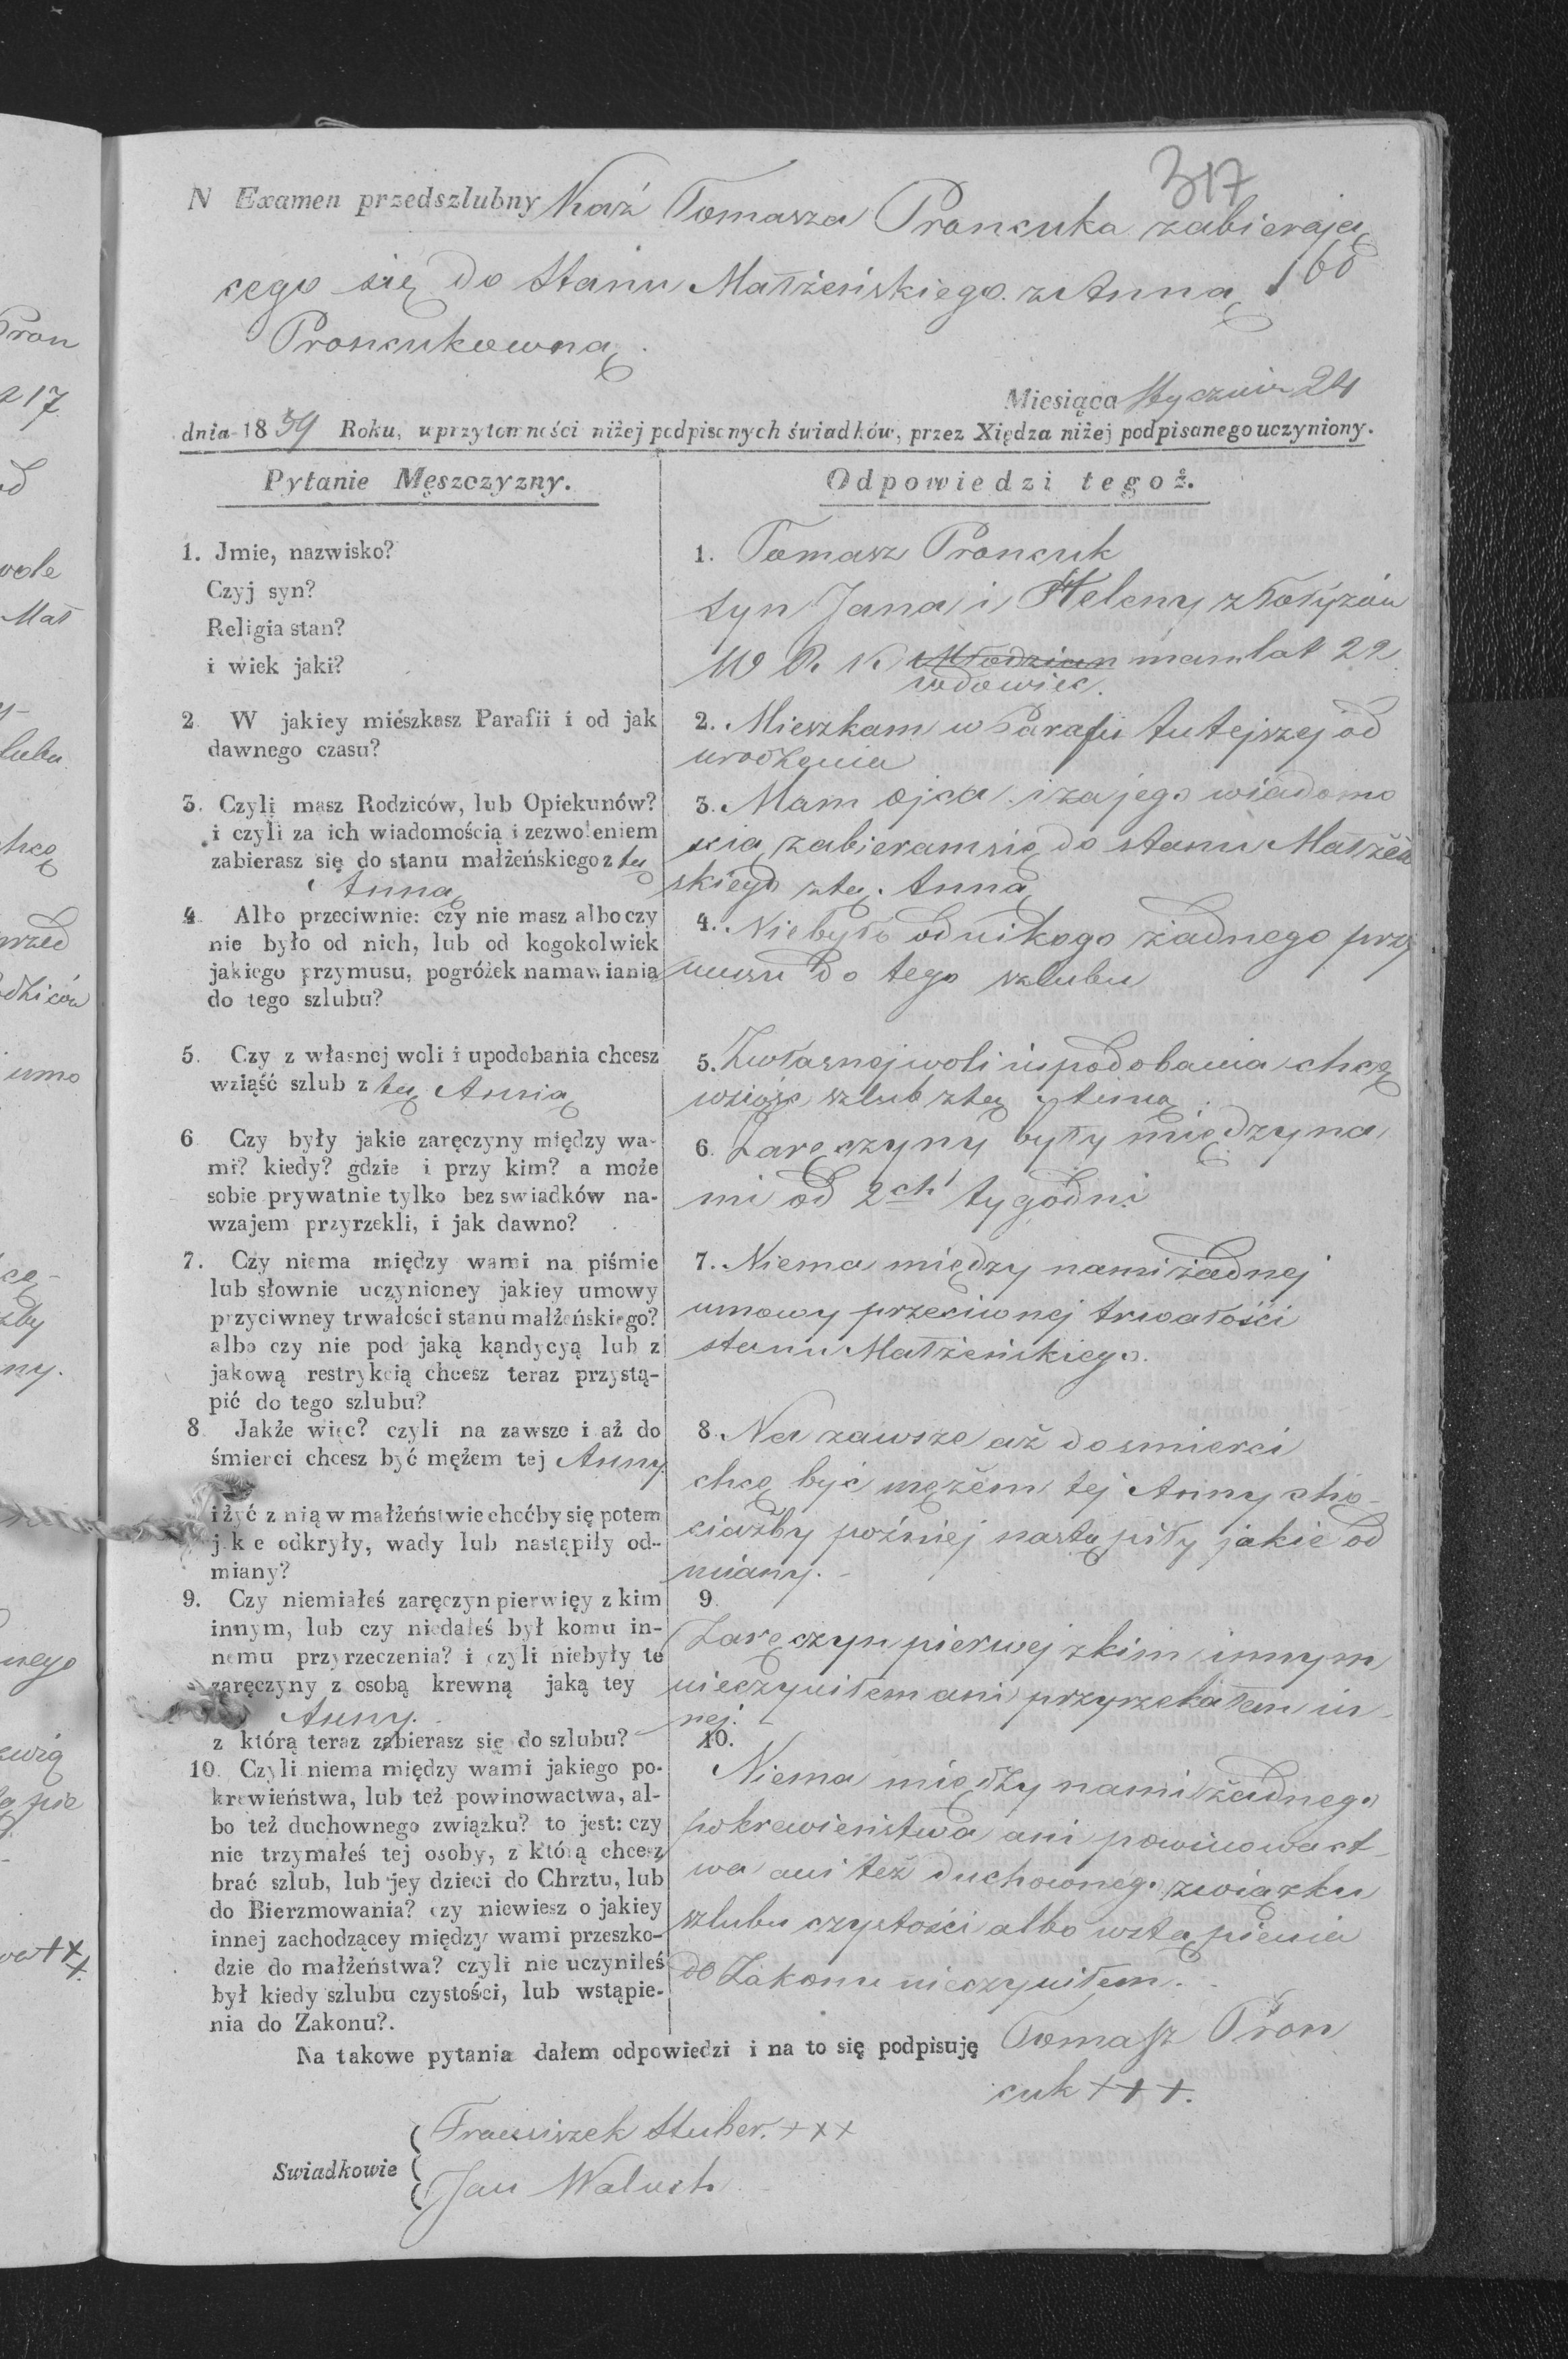 317
N Examen przedszlubny Kaź Tomasza Proncuka zabierają
cego się do Stanu Małżeńskiego z Anną 160
Proncukowną.
Miesiąca Stycznia 24
dnia 1859 Roku, w przytomności niżej podpisanych świadków, przez Xiędza niżej podpisanego uczyniony.
Pytanie Męszczyzny.
1. Jmie, nazwisko?
Czyj syn?
Religia stan?
i wiek jaki?
2. W jakiey mieszkasz Parafii i od jak
dawnego czasu?
3. Czyli masz Rodziców, lub Opiekunów?
i czyli za ich wiadomością i zezwoleniem
zabierasz się do stanu małżeńskiego z tą
Anną
4. Albo przeciwnie: czy nie masz albo czy
nie było od nich, lub od kogokolwiek
jakiego przymusu, pogróżek namawiania
do tego szlubu?
5. Czy z własnej woli i upodobania chcesz
wziąść szlub z tą Anną
6. Czy były jakie zaręczyny między wa-
mi? kiedy? gdzie i przy kim? a może
sobie prywatnie tylko bez swiadków na-
wzajem przyrzekli, i jak dawno?
7. Czy niema między wami na piśmie
lub słownie uczynioney jakiey umowy
przyciwney trwałości stanu małżeńskiego?
albo czy nie pod jaką kądycyą lub z
jakową restrykcią chcesz teraz przystą-
pić do tego szlubu?
8. Jakże więc? czyli na zawsze i aż do
śmierci chcesz być mężem tej Anny
i żyć z nią w małżeństwie choćby się potem
jakie odkryły, wady lub nastąpiły od-
miany?
9. Czy niemiałeś zaręczyn pierwięy z kim
innym, lub czy niedałeś był komu in-
nemu przyrzeczenia? i czyli niebyły te
zaręczyny z osobą krewną jaką tey
Anny.
z którą teraz zabierasz się do szlubu?
10. Czyli niema między wami jakiego po-
krewieństwa, lub też powinowactwa, al-
bo też duchownego związku? to jest: czy
nie trzymałeś tej osoby, z którą chcesz
brać szlub, lub jey dzieci do Chrztu, lub
do Bierzmowania? czy niewiesz o jakiey
innej zachodzącey między wami przeszko-
dzie do małżeństwa? czyli nie uczyniłeś
był kiedy szlubu czystości, lub wstąpie-
nia do Zakonu?.
Odpowiedzi tegoż.
1. Tomasz Proncuk
syn Jana i Heleny z
W R. K. Młodzian mam lat 22
wdowiec.
2. Mieszkam w Parafii tutejszej od
urodzenia
3. Mam ojca i za jego wiadomo
scią zabieram się do stanu Małżeń
skiego z tą Anną
4. Niebyło od nikogo żadnego przy
musu do tego szlubu
5. Z własnej woli i upodobania chcę
wziąsc szlub z tą Anną
6. Zaręczyny były między na
mi od 2ch tygodni
7. Niema między nami żadnej
umowy przeciwnej trwałości
stanu Małżeńskiego.
8. Na zawsze aż do smierci
chcę być mężem tej Anny cho-
ciażby później nastąpiły jakie od
miany. -
9.
Zaręczyn pierwej z kim innym
nieczyniłem ani przyrzekałem in-
nej. -
10.
Niema między nami żadnego
pokrewieństwa ani powinowact-
wa ani też duchownego związku
szlubu czystości albo wstąpienia
do Zakonu nieczyniłem.
Na takowe pytania dałem odpowiedzi i na to się podpisuję Tomasz Pron
cuk +++.
Swiadkowie
Franciszek Huber. +++
Jan Waluch